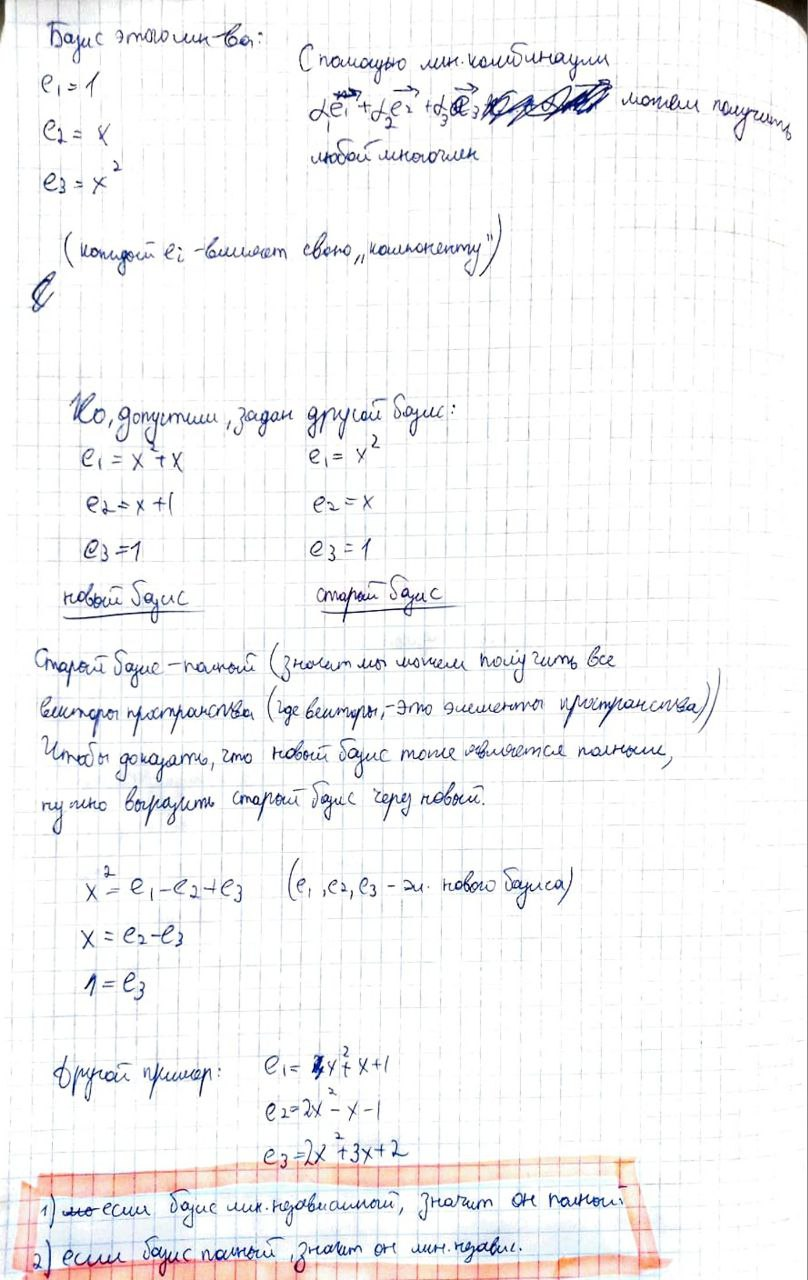 Базис этого мн-ва:
e₁ = 1
e₂ = x
e₃ = x²
С помощью лин. комбинации
α₁e₁ + α₂e₂ + α₃e₃ можем получить
любой многочлен
(каждый eᵢ - влияет свою „компоненту")
Но, допустим, задан другой базис:
e₁ = x² + x
e₂ = x + 1
e₃ = 1
новый базис
e₁ = x²
e₂ = x
e₃ = 1
старый базис
Старый базис - полный (значит мы можем получить все
векторы пространства (где векторы, - это элементы пространства))
Чтобы доказать, что новый базис тоже является полным,
нужно выразить старый базис через новый.
x² = e₁ - e₂ + e₃ (e₁, e₂, e₃ - эл. нового базиса)
x = e₂ - e₃
1 = e₃
Другой пример:
e₁ = x² + x + 1
e₂ = 2x² - x - 1
e₃ = 2x² + 3x + 2
1) если базис лин. независимый, значит он полный
2) если базис полный, значит он лин. независ.